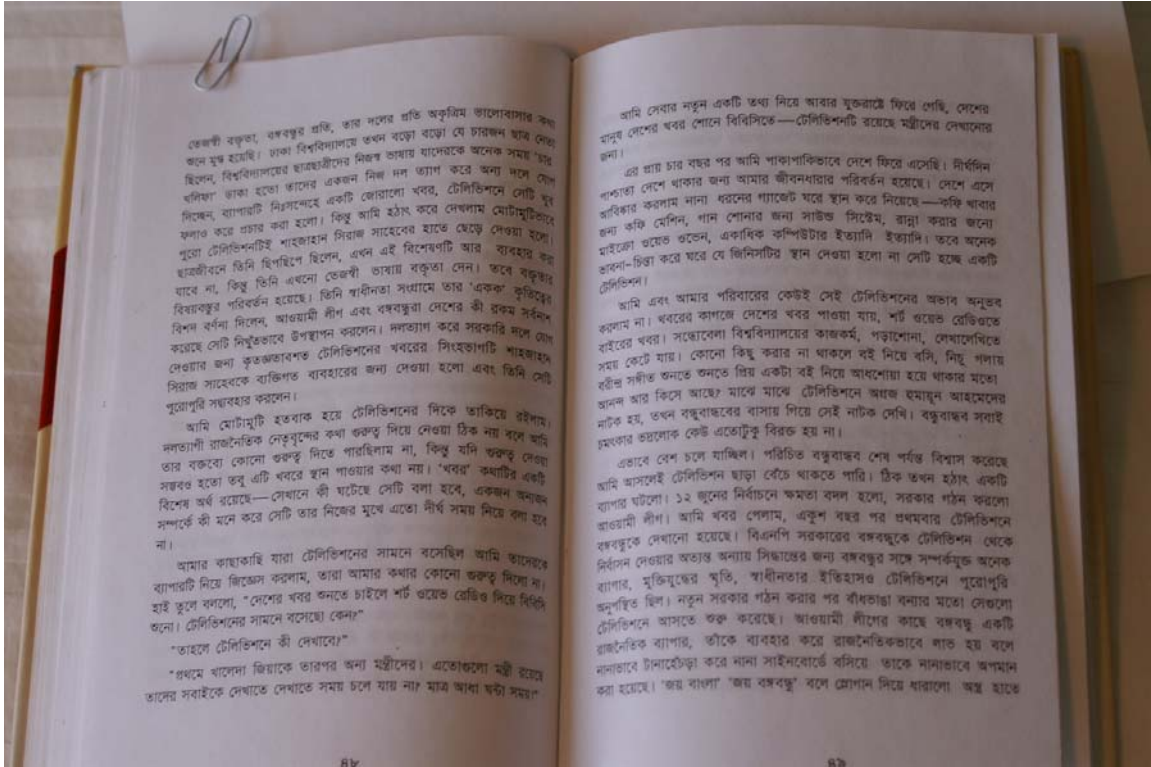 তেজস্বী বক্তৃতা, বঙ্গবন্ধুর প্রতি, তার দলের প্রতি অকৃত্রিম ভালোবাসার কথা
শুনে মুগ্ধ হয়েছি। ঢাকা বিশ্ববিদ্যালয়ে তখন বড়ো বড়ো যে চারজন ছাত্র নেতা
ছিলেন, বিশ্ববিদ্যালয়ের ছাত্রছাত্রীদের নিজস্ব ভাষায় যাদেরকে অনেক সময় 'চার
খলিফা' ডাকা হতো তাদের একজন নিজ দল ত্যাগ করে অন্য দলে যোগ
দিচ্ছেন, ব্যাপারটি নিঃসন্দেহে একটি জোরালো খবর, টেলিভিশনে সেটি খুব
ফলাও করে প্রচার করা হলো। কিন্তু আমি হঠাৎ করে দেখলাম মোটামুটিভাবে
পুরো টেলিভিশনটিই শাহজাহান সিরাজ সাহেবের হাতে ছেড়ে দেওয়া হলো।
ছাত্রজীবনে তিনি ছিপছিপে ছিলেন, এখন এই বিশেষণটি আর ব্যবহার করা
যাবে না, কিন্তু তিনি এখনো তেজস্বী ভাষায় বক্তৃতা দেন। তবে বক্তৃতার
বিষয়বস্তুর পরিবর্তন হয়েছে। তিনি স্বাধীনতা সংগ্রামে তার 'একক' কৃতিত্বের
বিশদ বর্ণনা দিলেন, আওয়ামী লীগ এবং বঙ্গবন্ধুরা দেশের কী রকম সর্বনাশ
করেছে সেটি নিখুঁতভাবে উপস্থাপন করলেন। দলত্যাগ করে সরকারি দলে যোগ
দেওয়ার জন্য কৃতজ্ঞতাবশত টেলিভিশনের খবরের সিংহভাগটি শাহজাহান
সিরাজ সাহেবকে ব্যক্তিগত ব্যবহারের জন্য দেওয়া হলো এবং তিনি সেটি
পুরোপুরি সদ্ব্যবহার করলেন।
আমি মোটামুটি হতবাক হয়ে টেলিভিশনের দিকে তাকিয়ে রইলাম।
দলত্যাগী রাজনৈতিক নেতৃবৃন্দের কথা গুরুত্ব দিয়ে নেওয়া ঠিক নয় বলে আমি
তার বক্তব্যে কোনো গুরুত্ব দিতে পারছিলাম না, কিন্তু যদি গুরুত্ব দেওয়া
সম্ভবও হতো তবু এটি খবরে স্থান পাওয়ার কথা নয়। 'খবর' কথাটির একটি
বিশেষ অর্থ রয়েছে—সেখানে কী ঘটেছে সেটি বলা হবে, একজন অন্যজন
সম্পর্কে কী মনে করে সেটি তার নিজের মুখে এতো দীর্ঘ সময় নিয়ে বলা হবে
না।
আমার কাছাকাছি যারা টেলিভিশনের সামনে বসেছিল আমি তাদেরকে
ব্যাপারটি নিয়ে জিজ্ঞেস করলাম, তারা আমার কথার কোনো গুরুত্ব দিলো না।
হাই তুলে বললো, "দেশের খবর শুনতে চাইলে শর্ট ওয়েভ রেডিও দিয়ে বিবিসি
শুনো। টেলিভিশনের সামনে বসেছো কেন?"
"তাহলে টেলিভিশনে কী দেখাবে?"
"প্রথমে খালেদা জিয়াকে তারপর অন্য মন্ত্রীদের। এতোগুলো মন্ত্রী রয়েছে
তাদের সবাইকে দেখাতে দেখাতে সময় চলে যায় না? মাত্র আধা ঘন্টা সময়!"
৪৮
আমি সেবার নতুন একটি তথ্য নিয়ে আবার যুক্তরাষ্ট্রে ফিরে গেছি, দেশের
মানুষ দেশের খবর শোনে বিবিসিতে—টেলিভিশনটি রয়েছে মন্ত্রীদের দেখানোর
জন্য।
এর প্রায় চার বছর পর আমি পাকাপাকিভাবে দেশে ফিরে এসেছি। দীর্ঘদিন
পাশ্চাত্য দেশে থাকার জন্য আমার জীবনধারার পরিবর্তন হয়েছে। দেশে এসে
আবিষ্কার করলাম নানা ধরনের গ্যাজেট ঘরে স্থান করে নিয়েছে—কফি খাবার
জন্য কফি মেশিন, গান শোনার জন্য সাউন্ড সিস্টেম, রান্না করার জন্যে
মাইক্রো ওয়েভ ওভেন, একাধিক কম্পিউটার ইত্যাদি ইত্যাদি। তবে অনেক
ভাবনা-চিন্তা করে ঘরে যে জিনিসটির স্থান দেওয়া হলো না সেটি হচ্ছে একটি
টেলিভিশন।
আমি এবং আমার পরিবারের কেউই সেই টেলিভিশনের অভাব অনুভব
করলাম না। খবরের কাগজে দেশের খবর পাওয়া যায়, শর্ট ওয়েভ রেডিওতে
বাইরের খবর। সন্ধ্যেবেলা বিশ্ববিদ্যালয়ের কাজকর্ম, পড়াশোনা, লেখালেখিতে
সময় কেটে যায়। কোনো কিছু করার না থাকলে বই নিয়ে বসি, নিচু গলায়
রবীন্দ্র সঙ্গীত শুনতে শুনতে প্রিয় একটা বই নিয়ে আধশোয়া হয়ে থাকার মতো
আনন্দ আর কিসে আছে? মাঝে মাঝে টেলিভিশনে অগ্রজ হুমায়ূন আহমেদের
নাটক হয়, তখন বন্ধুবান্ধবের বাসায় গিয়ে সেই নাটক দেখি। বন্ধুবান্ধব সবাই
চমৎকার ভদ্রলোক কেউ এতোটুকু বিরক্ত হয় না।
এভাবে বেশ চলে যাচ্ছিল। পরিচিত বন্ধুবান্ধব শেষ পর্যন্ত বিশ্বাস করেছে
আমি আসলেই টেলিভিশন ছাড়া বেঁচে থাকতে পারি। ঠিক তখন হঠাৎ একটি
ব্যাপার ঘটলো। ১২ জুনের নির্বাচনে ক্ষমতা বদল হলো, সরকার গঠন করলো
আওয়ামী লীগ। আমি খবর পেলাম, একুশ বছর পর প্রথমবার টেলিভিশনে
বঙ্গবন্ধুকে দেখানো হয়েছে। বিএনপি সরকারের বঙ্গবন্ধুকে টেলিভিশন থেকে
নির্বাসন দেওয়ার অত্যন্ত অন্যায় সিদ্ধান্তের জন্য বঙ্গবন্ধুর সঙ্গে সম্পর্কযুক্ত অনেক
ব্যাপার, মুক্তিযুদ্ধের স্মৃতি, স্বাধীনতার ইতিহাসও টেলিভিশনে পুরোপুরি
অনুপস্থিত ছিল। নতুন সরকার গঠন করার পর বাঁধভাঙা বন্যার মতো সেগুলো
টেলিভিশনে আসতে শুরু করেছে। আওয়ামী লীগের কাছে বঙ্গবন্ধু একটি
রাজনৈতিক ব্যাপার, তাঁকে ব্যবহার করে রাজনৈতিকভাবে লাভ হয় বলে
নানাভাবে টানাহেঁচড়া করে নানা সাইনবোর্ডে বসিয়ে তাকে নানাভাবে অপমান
করা হয়েছে। 'জয় বাংলা' 'জয় বঙ্গবন্ধু' বলে স্লোগান দিয়ে ধারালো অস্ত্র হাতে
৪৯